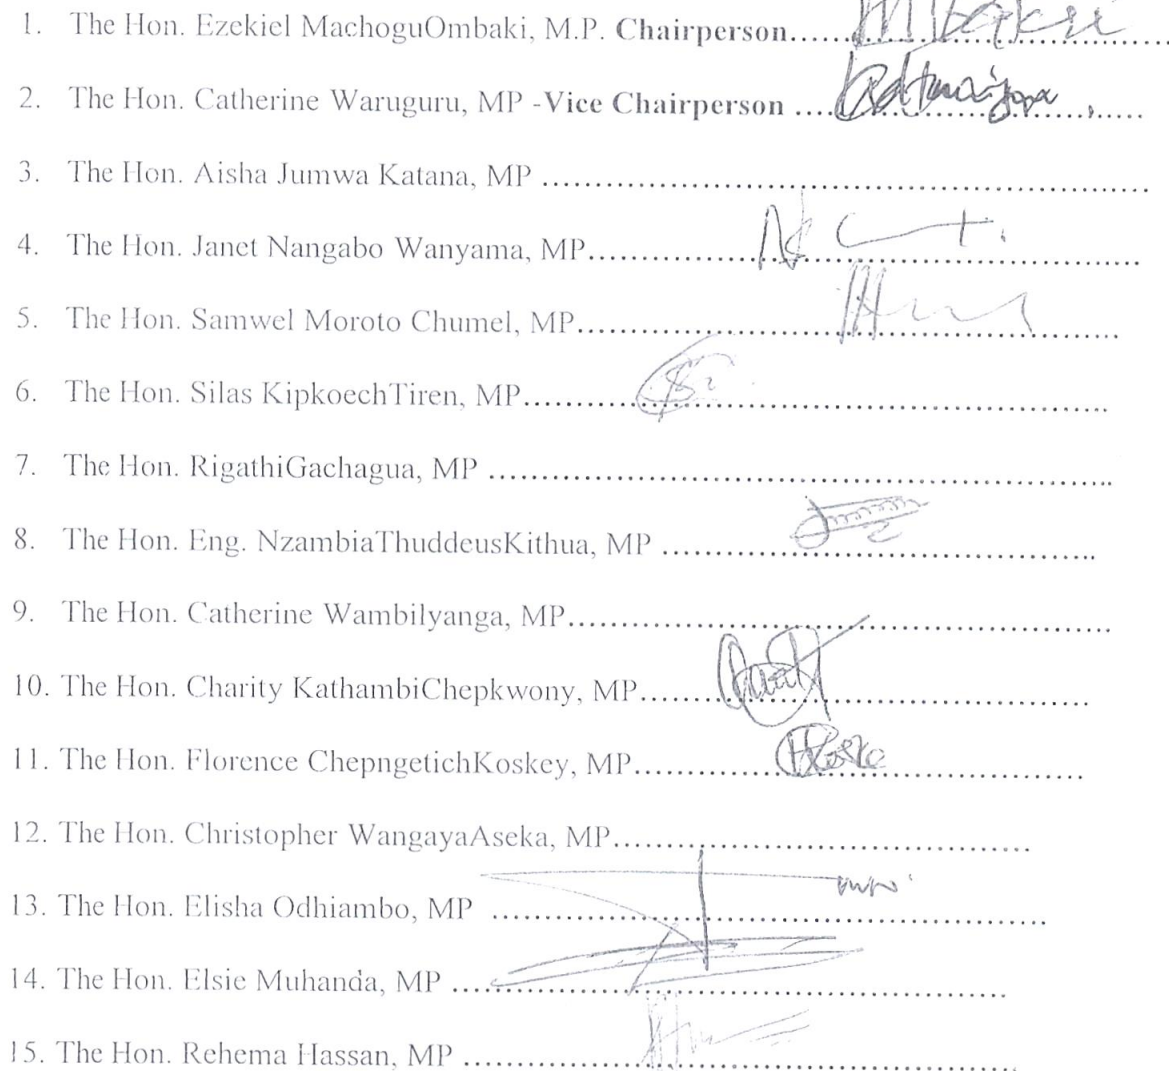 1. The Hon. Ezekiel MachoguOmbaki, M.P. Chairperson......
2. The Hon. Catherine Waruguru, MP -Vice Chairperson ....
3. The Hon. Aisha Jumwa Katana, MP ....................
4. The Hon. Janet Nangabo Wanyama, MP....................
5. The Hon. Samwel Moroto Chumel, MP....................
6. The Hon. Silas KipkoechTiren, MP....................
7. The Hon. RigathiGachagua, MP ....................
8. The Hon. Eng. NzambiaThuddeusKithua, MP ....................
9. The Hon. Catherine Wambilyanga, MP....................
10. The Hon. Charity KathambiChepkwony, MP....................
11. The Hon. Florence ChepngetichKoskey, MP....................
12. The Hon. Christopher WangayaAseka, MP....................
13. The Hon. Elisha Odhiambo, MP ....................
14. The Hon. Elsie Muhanda, MP ....................
15. The Hon. Rehema Hassan, MP ....................